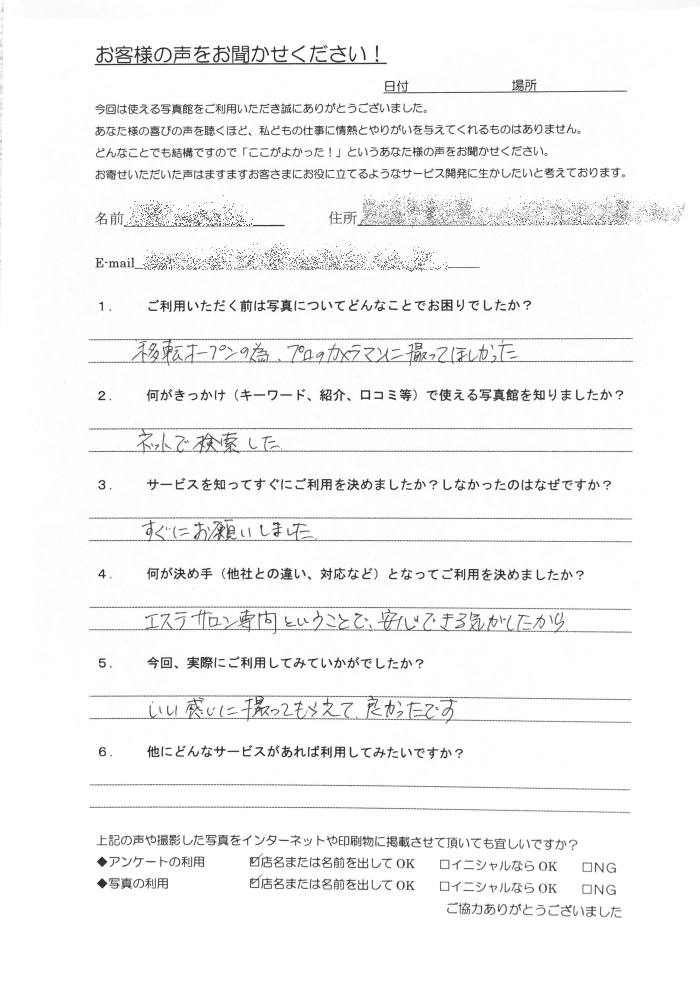 お客様の声をお聞かせください！
日付 場所
今回は使える写真館をご利用いただき誠にありがとうございました。
あなた様の喜びの声を聴くほど、私どもの仕事に情熱とやりがいを与えてくれるものはありません。
どんなことでも結構ですので「ここがよかった！」というあなた様の声をお聞かせください。
お寄せいただいた声はますますお客さまにお役に立てるようなサービス開発に生かしたいと考えております。
名前 住所
E-mail
１． ご利用いただく前は写真についてどんなことでお困りでしたか？
移転オープンの為、プロのカメラマンに撮ってほしかった
２． 何がきっかけ（キーワード、紹介、口コミ等）で使える写真館を知りましたか？
ネットで検索した
３． サービスを知ってすぐにご利用を決めましたか？しなかったのはなぜですか？
すぐにお願いしました
４． 何が決め手（他社との違い、対応など）となってご利用を決めましたか？
エステサロン専門ということで、安心できる気がしたから
５． 今回、実際にご利用してみていかがでしたか？
いい感じに撮ってもらえて、良かったです
６． 他にどんなサービスがあれば利用してみたいですか？
上記の声や撮影した写真をインターネットや印刷物に掲載させて頂いても宜しいですか？
◆アンケートの利用 ☑店名または名前を出して OK □イニシャルなら OK □NG
◆写真の利用 ☑店名または名前を出して OK □イニシャルなら OK □NG
ご協力ありがとうございました